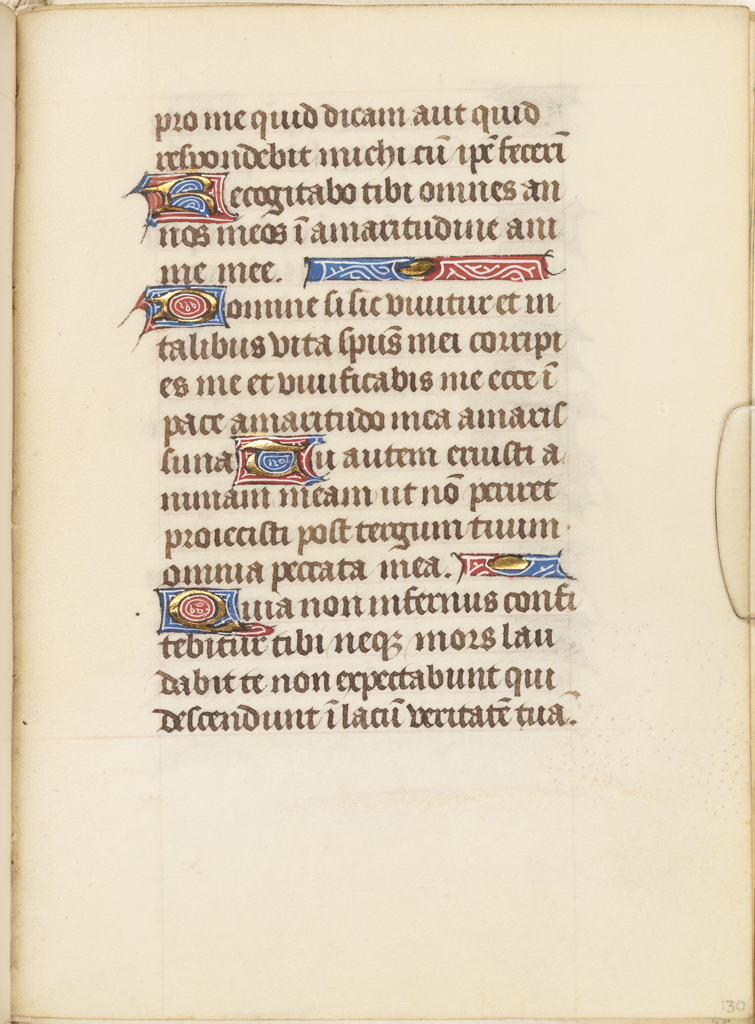 pro me quid dicam aut quid
respondebit michi cū ip̄e fecerī
Recogitabo tibi omnes an
nos meos ī amaritudine ani
me mee.
Domine si sic vivitur et in
talibus vita spūs mei corripi
es me et vivificabis me ecce ī
pace amaritudo mea amaris
sima Tu autem eruisti a
nimam meam ut nō periret
proiecisti post tergum tuum
omnia peccata mea.
Quia non infernus confi
tebitur tibi neqꝫ mors lau
dabit te non expectabunt qui
descendunt ī lacū veritatē tuā.
130